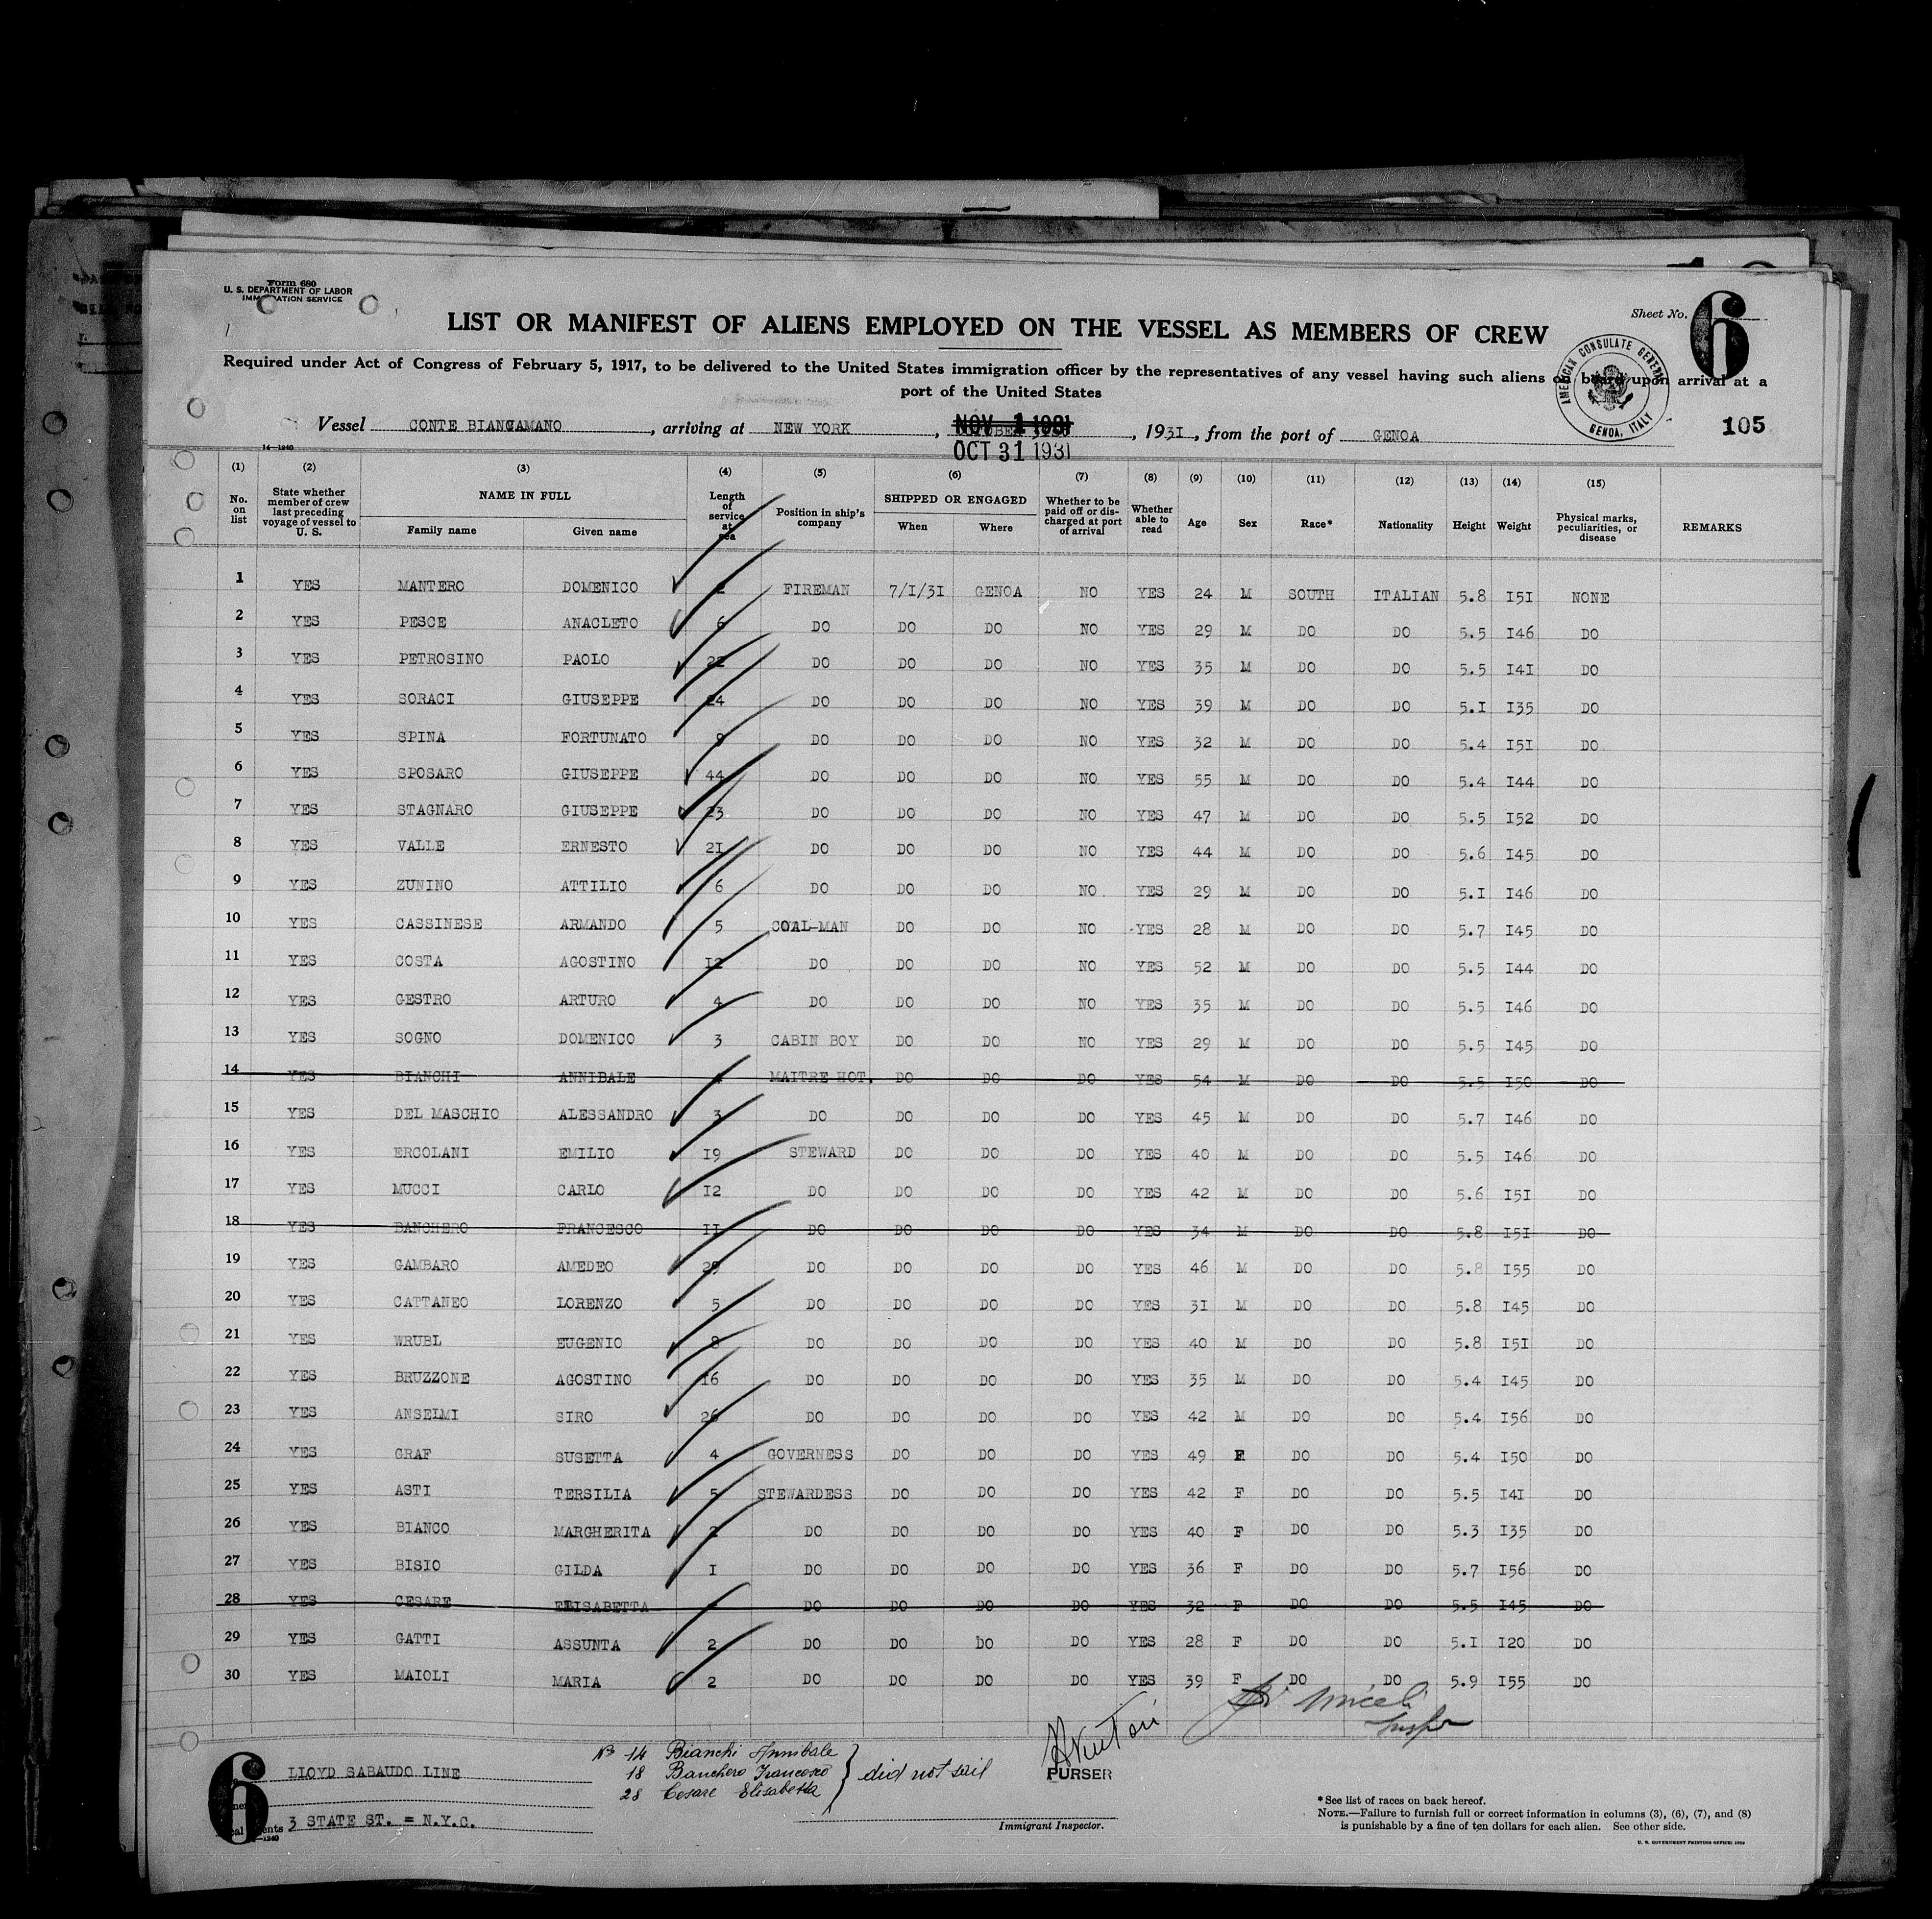 Form 680
U. S. DEPARTMENT OF LABOR
IMMIGRATION SERVICE
Sheet No. 6
LIST OR MANIFEST OF ALIENS EMPLOYED ON THE VESSEL AS MEMBERS OF CREW
Required under Act of Congress of February 5, 1917, to be delivered to the United States immigration officer by the representatives of any vessel having such aliens on board upon arrival at a
port of the United States
AMERICAN CONSULATE GENERAL GENOA, ITALY
105
Vessel CONTE BIANCAMANO, arriving at NEW YORK, NOV 1 1931, 1931, from the port of GENOA
OCT 31 1931
14—1240
(1) (2) (3) (4) (5) (6) (7) (8) (9) (10) (11) (12) (13) (14) (15)
No. on list | State whether member of crew last preceding voyage of vessel to U. S. | NAME IN FULL | Family name | Given name | Length of service at sea | Position in ship's company | SHIPPED OR ENGAGED | When | Where | Whether to be paid off or discharged at port of arrival | Whether able to read | Age | Sex | Race* | Nationality | Height | Weight | Physical marks, peculiarities, or disease | REMARKS
1 YES MANTERO DOMENICO 2 FIREMAN 7/I/3I GENOA NO YES 24 M SOUTH ITALIAN 5.8 I5I NONE
2 YES PESCE ANACLETO 6 DO DO DO NO YES 29 M DO DO 5.5 I46 DO
3 YES PETROSINO PAOLO 22 DO DO DO NO YES 35 M DO DO 5.5 I4I DO
4 YES SORACI GIUSEPPE 24 DO DO DO NO YES 39 M DO DO 5.I I35 DO
5 YES SPINA FORTUNATO 9 DO DO DO NO YES 32 M DO DO 5.4 I5I DO
6 YES SPOSARO GIUSEPPE 44 DO DO DO NO YES 55 M DO DO 5.4 I44 DO
7 YES STAGNARO GIUSEPPE 23 DO DO DO NO YES 47 M DO DO 5.5 I52 DO
8 YES VALLE ERNESTO 2I DO DO DO NO YES 44 M DO DO 5.6 I45 DO
9 YES ZUNINO ATTILIO 6 DO DO DO NO YES 29 M DO DO 5.I I46 DO
10 YES CASSINESE ARMANDO 5 COAL-MAN DO DO NO YES 28 M DO DO 5.7 I45 DO
11 YES COSTA AGOSTINO I2 DO DO DO NO YES 52 M DO DO 5.5 I44 DO
12 YES GESTRO ARTURO 4 DO DO DO NO YES 35 M DO DO 5.5 I46 DO
13 YES SOGNO DOMENICO 3 CABIN BOY DO DO NO YES 29 M DO DO 5.5 I45 DO
14 YES BIANCHI ANNIBALE 4 MAITRE HOT. DO DO DO YES 54 M DO DO 5.5 I50 DO
15 YES DEL MASCHIO ALESSANDRO 3 DO DO DO DO YES 45 M DO DO 5.7 I46 DO
16 YES ERCOLANI EMILIO I9 STEWARD DO DO DO YES 40 M DO DO 5.5 I46 DO
17 YES MUCCI CARLO I2 DO DO DO DO YES 42 M DO DO 5.6 I5I DO
18 YES BANCHERO FRANCESCO II DO DO DO DO YES 34 M DO DO 5.8 I5I DO
19 YES GAMBARO AMEDEO 29 DO DO DO DO YES 46 M DO DO 5.8 I55 DO
20 YES CATTANEO LORENZO 5 DO DO DO DO YES 3I M DO DO 5.8 I45 DO
21 YES WRUBL EUGENIO 8 DO DO DO DO YES 40 M DO DO 5.8 I5I DO
22 YES BRUZZONE AGOSTINO I6 DO DO DO DO YES 35 M DO DO 5.4 I45 DO
23 YES ANSELMI SIRO 26 DO DO DO DO YES 42 M DO DO 5.4 I56 DO
24 YES GRAF SUSETTA 4 GOVERNESS DO DO DO YES 49 F DO DO 5.4 I50 DO
25 YES ASTI TERSILIA 5 STEWARDESS DO DO DO YES 42 F DO DO 5.5 I4I DO
26 YES BIANCO MARGHERITA 2 DO DO DO DO YES 40 F DO DO 5.3 I35 DO
27 YES BISIO GILDA I DO DO DO DO YES 36 F DO DO 5.7 I56 DO
28 YES CESARE ELISABETTA DO DO DO DO YES 32 F DO DO 5.5 I45 DO
29 YES GATTI ASSUNTA 2 DO DO DO DO YES 28 F DO DO 5.I I20 DO
30 YES MAIOLI MARIA 2 DO DO DO DO YES 39 F DO DO 5.9 I55 DO
Miceli
6
LLOYD SABAUDO LINE
3 STATE ST. = N.Y.C.
No 14 Bianchi Annibale
18 Banchero Francesco
28 Cesare Elisabetta
} did not sail
PURSER
Immigrant Inspector.
*See list of races on back hereof.
NOTE.—Failure to furnish full or correct information in columns (3), (6), (7), and (8)
is punishable by a fine of ten dollars for each alien. See other side.
U. S. GOVERNMENT PRINTING OFFICE: 1929